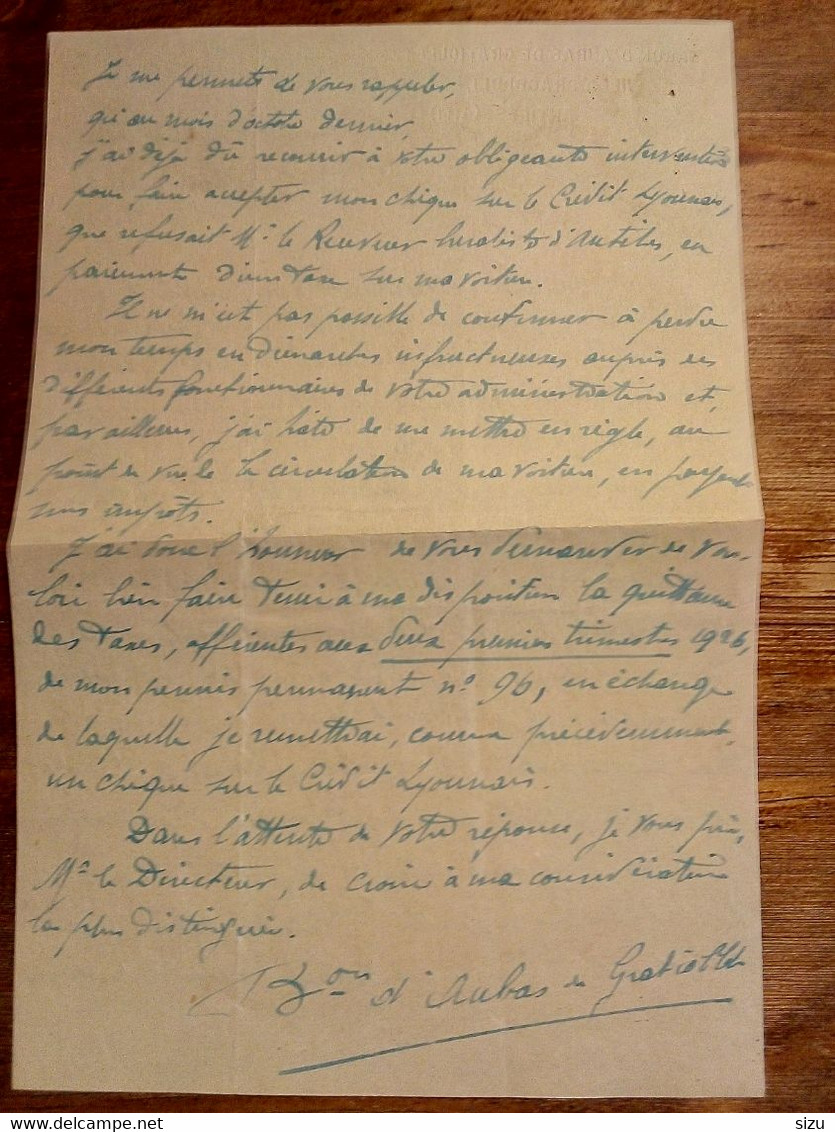 Je me permets de vous rappeler,
qu'au mois d'octobre dernier,
j'ai déjà dû recourir à votre obligeante intervention
pour faire accepter mon chèque sur le Crédit Lyonnais,
que refusait Mr. le Receveur buraliste d'Antibes, en
paiement d'une taxe sur ma voiture.
Il ne m'est pas possible de continuer à perdre
mon temps en démarches infructueuses auprès des
différents fonctionnaires de votre administration et,
par ailleurs, j'ai hâte de me mettre en règle, au
point de vue de la circulation de ma voiture, en payant
mes impôts.
J'ai donc l'honneur de vous demander de vou-
loir bien faire tenir à ma disposition la quittance
des taxes, afférentes aux deux premiers trimestres 1926,
de mon permis permanent n° 96, en échange
de laquelle je remettrai, comme précédemment,
un chèque sur le Crédit Lyonnais.
Dans l'attente de votre réponse, je vous prie,
Mr le Directeur, de croire à ma considération
la plus distinguée.
Bon d'Aubas de Gratiollet
delcampe.net
sizu